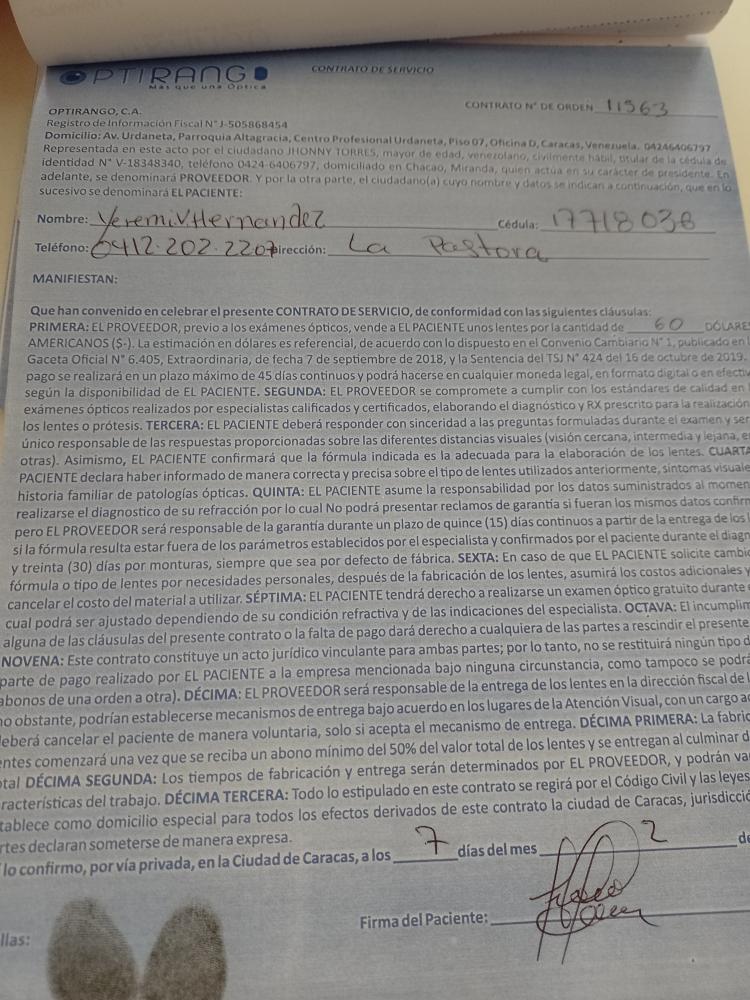 OPTIRANGO
Más que una Óptica
CONTRATO DE SERVICIO
CONTRATO N° DE ORDEN 11563
OPTIRANGO, C.A.
Registro de Información Fiscal N° J-505868454
Domicilio: Av. Urdaneta, Parroquia Altagracia, Centro Profesional Urdaneta, Piso 07, Oficina D, Caracas, Venezuela. 04246406797
Representada en este acto por el ciudadano JHONNY TORRES, mayor de edad, venezolano, civilmente hábil, titular de la cédula de
identidad N° V-18348340, teléfono 0424-6406797, domiciliado en Chacao, Miranda, quien actúa en su carácter de presidente. En
adelante, se denominará PROVEEDOR. Y por la otra parte, el ciudadano(a) cuyo nombre y datos se indican a continuación, que en lo
sucesivo se denominará EL PACIENTE:
Nombre: Yeremi V Hernandez Cédula: 17718036
Teléfono: 0412-202-2207 Dirección: La Pastora
MANIFIESTAN:
Que han convenido en celebrar el presente CONTRATO DE SERVICIO, de conformidad con las siguientes cláusulas:
PRIMERA: EL PROVEEDOR, previo a los exámenes ópticos, vende a EL PACIENTE unos lentes por la cantidad de 60 DÓLARES
AMERICANOS ($-). La estimación en dólares es referencial, de acuerdo con lo dispuesto en el Convenio Cambiario N° 1, publicado en
Gaceta Oficial N° 6.405, Extraordinaria, de fecha 7 de septiembre de 2018, y la Sentencia del TSJ N° 424 del 16 de octubre de 2019.
pago se realizará en un plazo máximo de 45 días continuos y podrá hacerse en cualquier moneda legal, en formato digital o en efectiv
según la disponibilidad de EL PACIENTE. SEGUNDA: EL PROVEEDOR se compromete a cumplir con los estándares de calidad en
exámenes ópticos realizados por especialistas calificados y certificados, elaborando el diagnóstico y RX prescrito para la realización
los lentes o prótesis. TERCERA: EL PACIENTE deberá responder con sinceridad a las preguntas formuladas durante el examen y ser
único responsable de las respuestas proporcionadas sobre las diferentes distancias visuales (visión cercana, intermedia y lejana, e
otras). Asimismo, EL PACIENTE confirmará que la fórmula indicada es la adecuada para la elaboración de los lentes. CUARTA
PACIENTE declara haber informado de manera correcta y precisa sobre el tipo de lentes utilizados anteriormente, síntomas visuale
historia familiar de patologías ópticas. QUINTA: EL PACIENTE asume la responsabilidad por los datos suministrados al momen
realizarse el diagnostico de su refracción por lo cual No podrá presentar reclamos de garantía si fueran los mismos datos confirm
pero EL PROVEEDOR será responsable de la garantía durante un plazo de quince (15) días continuos a partir de la entrega de los
si la fórmula resulta estar fuera de los parámetros establecidos por el especialista y confirmados por el paciente durante el diagn
y treinta (30) días por monturas, siempre que sea por defecto de fábrica. SEXTA: En caso de que EL PACIENTE solicite cambi
fórmula o tipo de lentes por necesidades personales, después de la fabricación de los lentes, asumirá los costos adicionales y
cancelar el costo del material a utilizar. SÉPTIMA: EL PACIENTE tendrá derecho a realizarse un examen óptico gratuito durante
cual podrá ser ajustado dependiendo de su condición refractiva y de las indicaciones del especialista. OCTAVA: El incumplim
alguna de las cláusulas del presente contrato o la falta de pago dará derecho a cualquiera de las partes a rescindir el presente
NOVENA: Este contrato constituye un acto jurídico vinculante para ambas partes; por lo tanto, no se restituirá ningún tipo d
parte de pago realizado por EL PACIENTE a la empresa mencionada bajo ninguna circunstancia, como tampoco se podrá
abonos de una orden a otra). DÉCIMA: EL PROVEEDOR será responsable de la entrega de los lentes en la dirección fiscal de l
no obstante, podrían establecerse mecanismos de entrega bajo acuerdo en los lugares de la Atención Visual, con un cargo a
deberá cancelar el paciente de manera voluntaria, solo si acepta el mecanismo de entrega. DÉCIMA PRIMERA: La fabric
entes comenzará una vez que se reciba un abono mínimo del 50% del valor total de los lentes y se entregan al culminar d
otal DÉCIMA SEGUNDA: Los tiempos de fabricación y entrega serán determinados por EL PROVEEDOR, y podrán va
racterísticas del trabajo. DÉCIMA TERCERA: Todo lo estipulado en este contrato se regirá por el Código Civil y las leyes
tablece como domicilio especial para todos los efectos derivados de este contrato la ciudad de Caracas, jurisdicció
rtes declaran someterse de manera expresa.
lo confirmo, por vía privada, en la Ciudad de Caracas, a los 7 días del mes 2 de
Firma del Paciente:
llas: